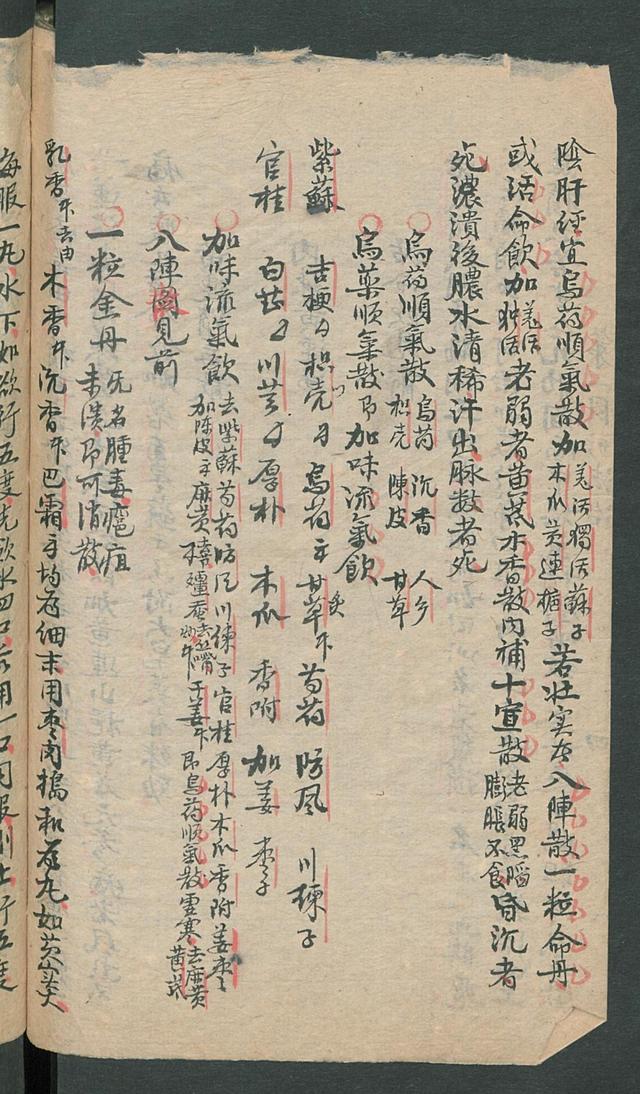 陰肝經宜烏药順氣散加羌活獨活蘇子木瓜黄連梔子若壮实者八陣散一粒命丹
或活命飲加羌活独活老弱者黄芪木香散内補十宣散老弱黑陷膨脹不食昏沉者
死濃潰後膿水清稀汗出脉数者死
烏药順氣散烏药沉香人参枳壳陳皮甘草
烏藥順氣散即加味流氣飲
紫蘇吉梗枳壳烏药甘草炙芍药防風川楝子
官桂白芷川芎厚朴木瓜香附加姜枣子
加味流氣飲去紫蘇芍药防风川楝子官桂厚朴木瓜香附姜枣加陈皮麻黄殭蚕去絲嘴干姜即烏药順氣散虚寒去麻黄黄芪
八陣圖見前
一粒金丹無名腫毒癰疽未潰即可消散
乳香去由木香沉香巴霜均為細末用枣肉搗和為丸如芡实大
每服一丸水下如欲行五度先飲水四口后用一口同服則止行五度